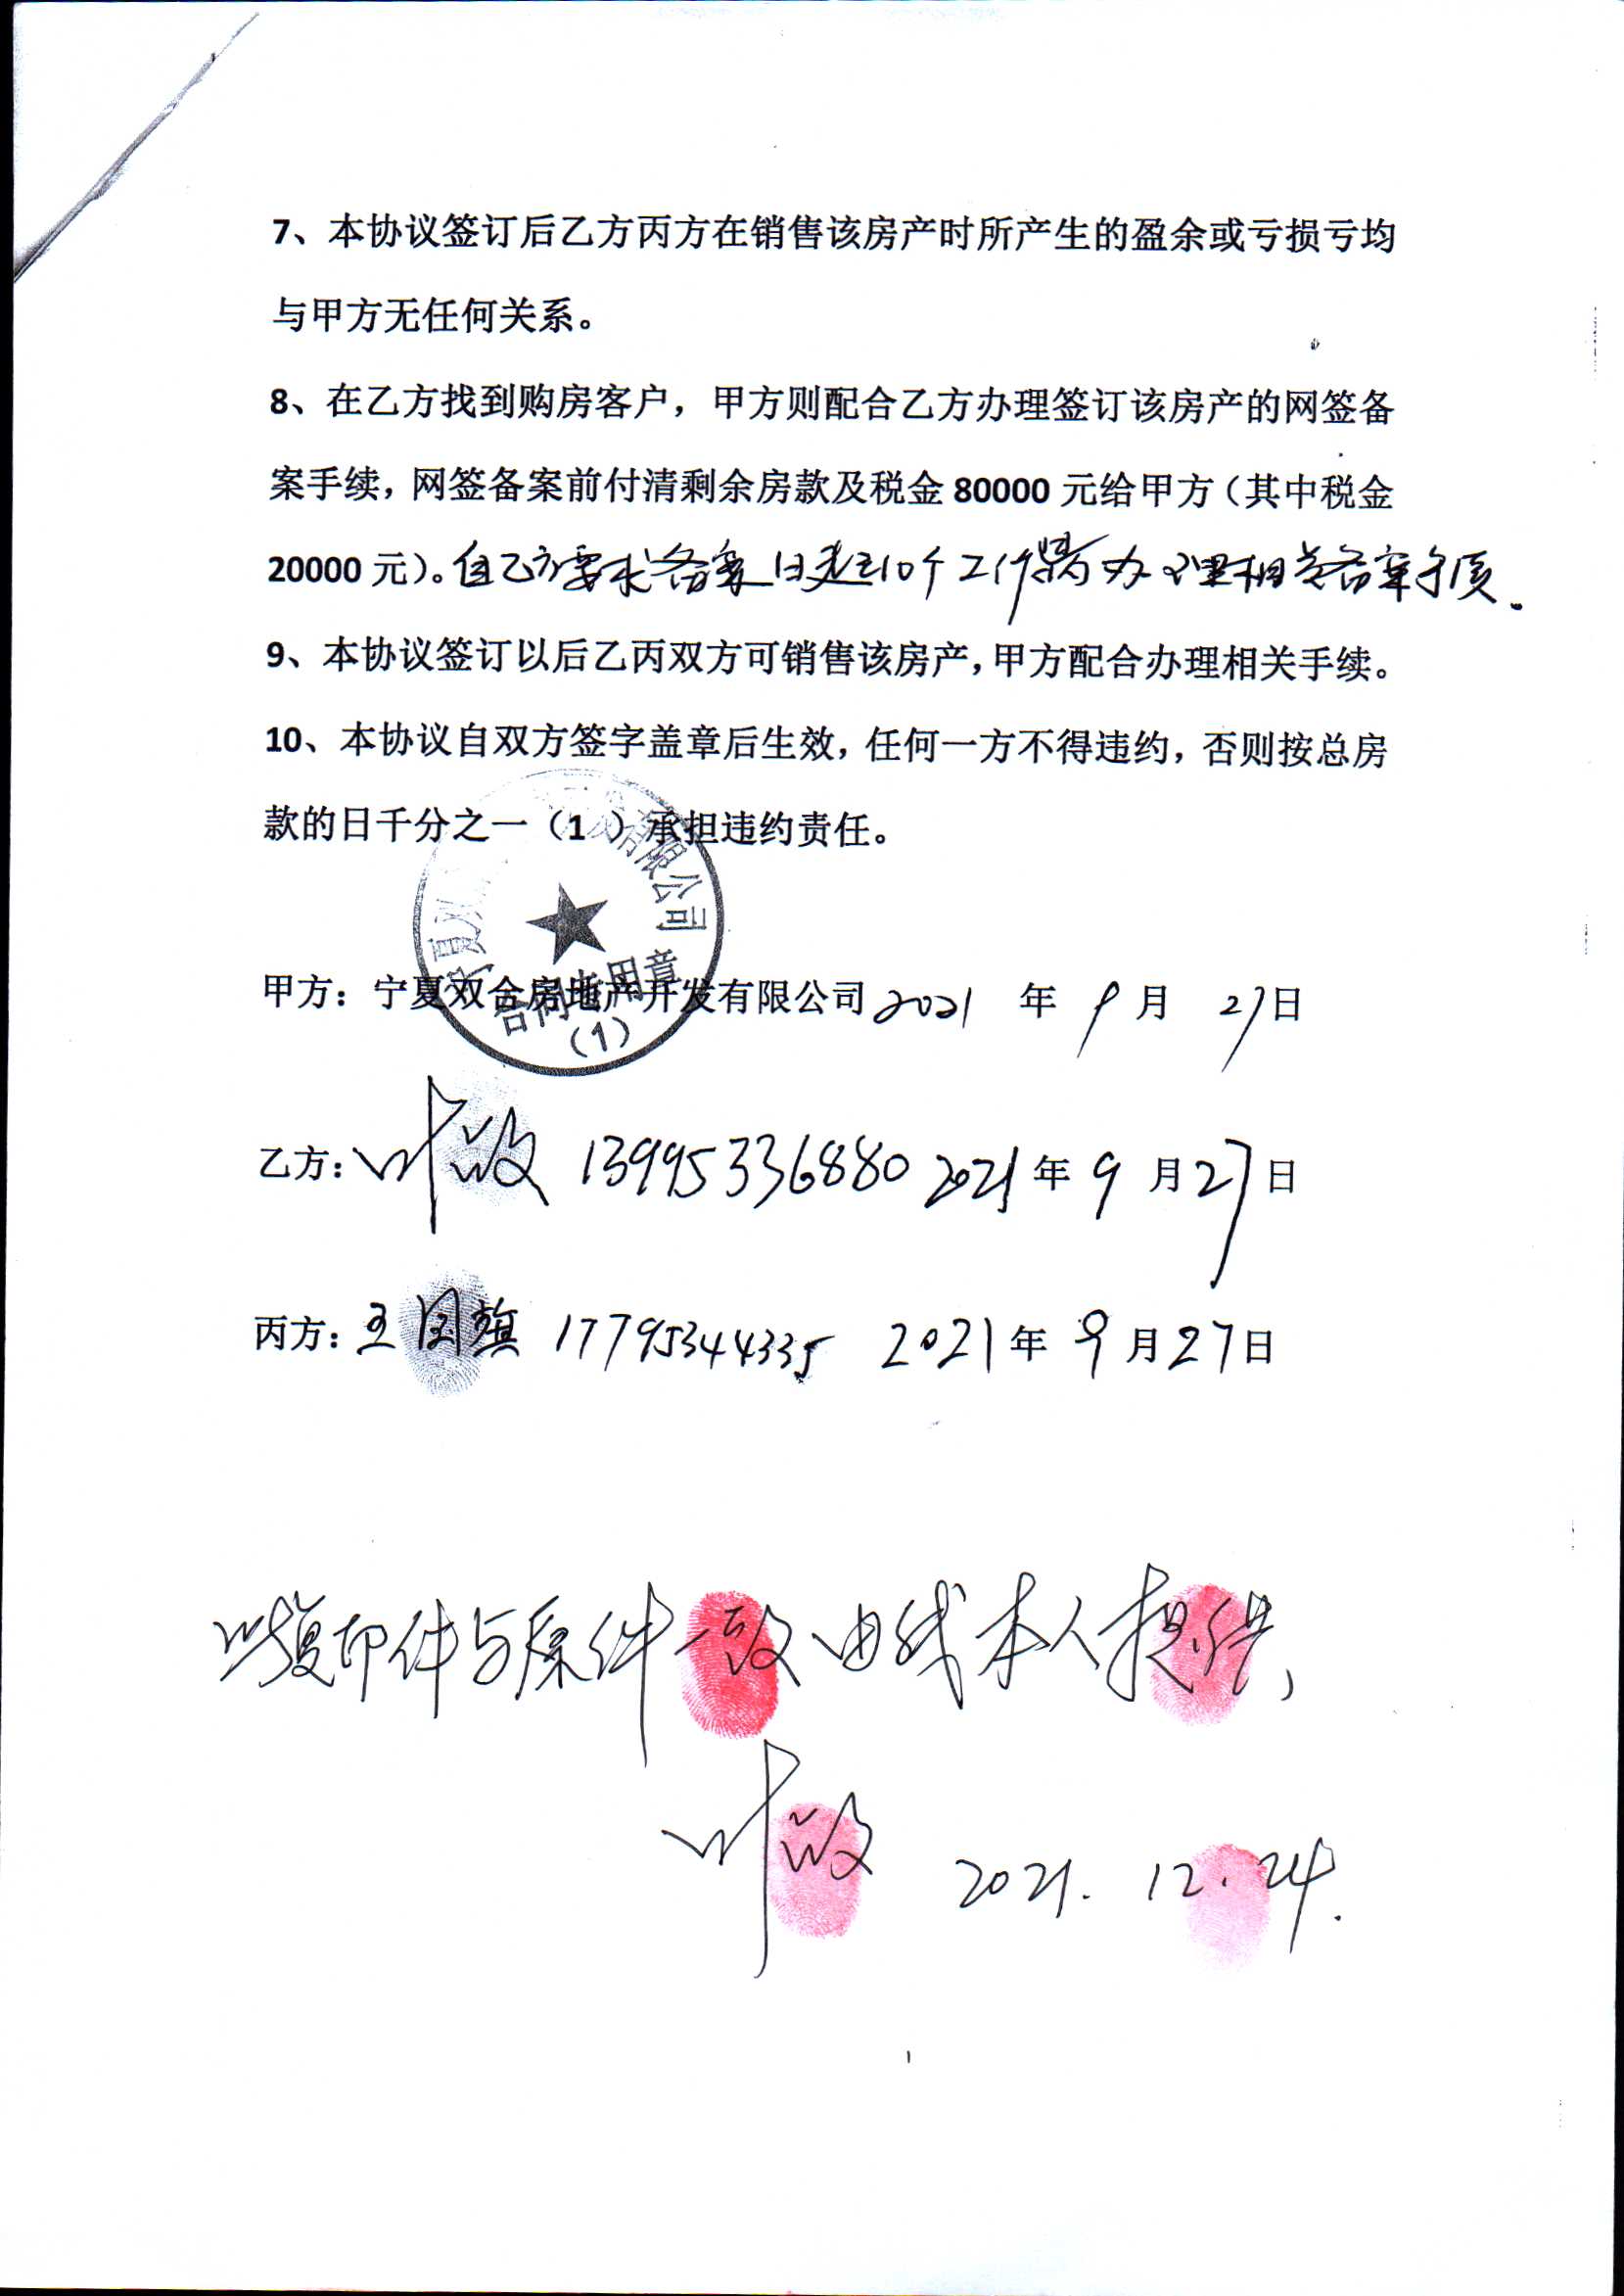 7、本协议签订后乙方丙方在销售该房产时所产生的盈余或亏损亏均
与甲方无任何关系。
8、在乙方找到购房客户，甲方则配合乙方办理签订该房产的网签备
案手续，网签备案前付清剩余房款及税金 80000 元给甲方（其中税金
20000 元）。自乙方要求备案日起10个工作 办理相关备案手续。
9、本协议签订以后乙丙双方可销售该房产，甲方配合办理相关手续。
10、本协议自双方签字盖章后生效，任何一方不得违约，否则按总房
款的日千分之一（1 ）承担违约责任。
有限公司
合同专用章
（1）
甲方：宁夏双合房地产开发有限公司 2021 年 9 月 27日
乙方：叶敏 13995336880 2021年 9 月27日
丙方：王国旗 17795344335 2021年 9 月27日
以复印件与原件一致由我本人提供，
叶敏 2021. 12. 24.